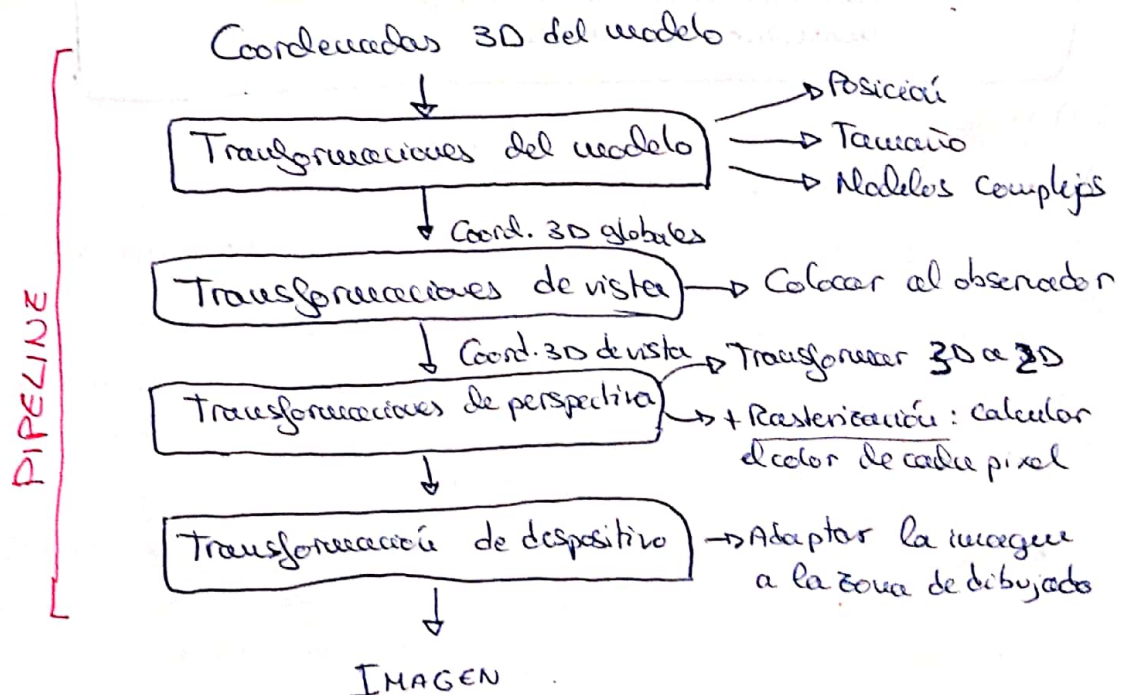 Coordenadas 3D del modelo
Transformaciones del modelo
Posición
Tamaño
Modelos complejos
Coord. 3D globales
Transformaciones de vista
Colocar al observador
Coord. 3D de vista
Transformar 3D a 2D
Transformaciones de perspectiva
+ Rasterización: calcular
el color de cada pixel
Transformación de despositivo
Adaptar la imagen
a la zona de dibujado
IMAGEN
PIPELINE